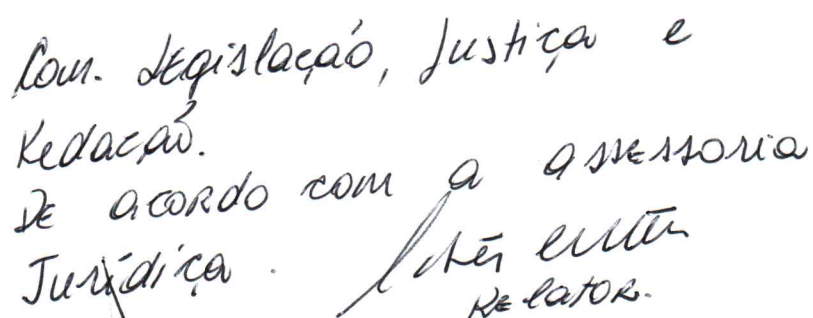 Com. Legislação, Justiça e
Redação.
De acordo com a assessoria
Jurídica.
Relator.